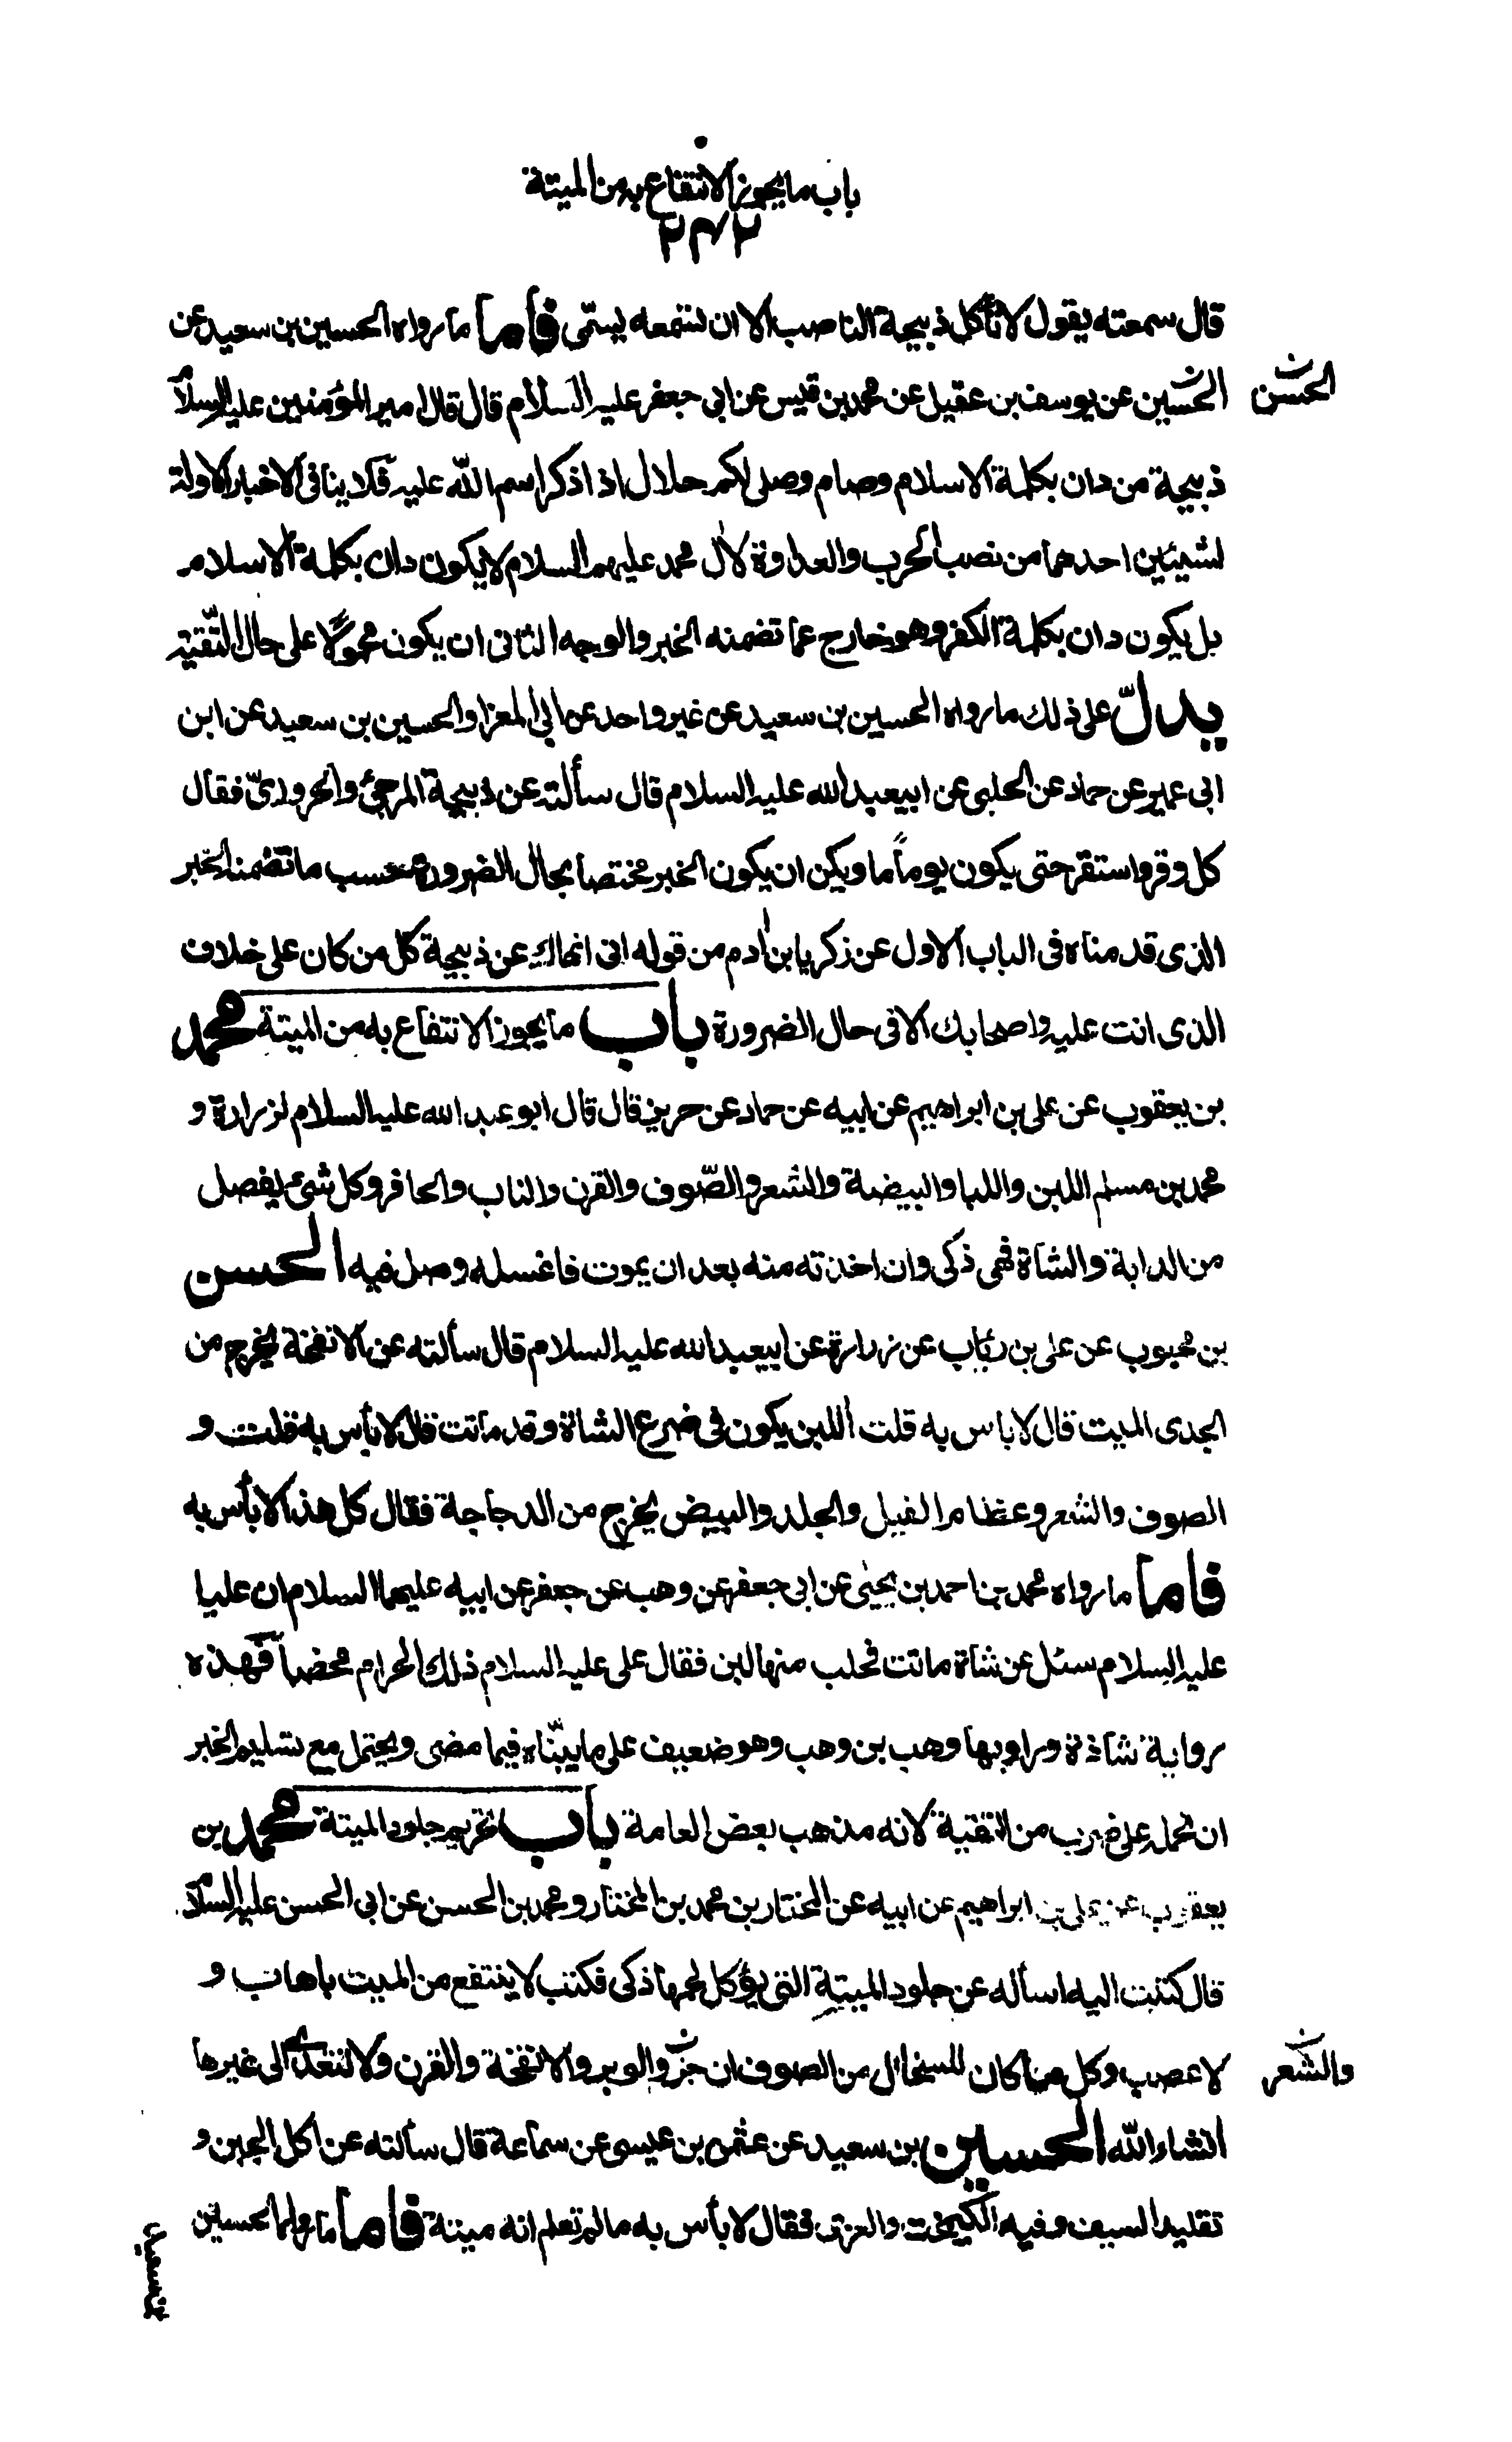 باب ما يجوز الانتفاع به من الميتة
٢٤٢
قال سمعته يقول لا تأكل ذبيحة الناصب الا ان تسمعه يسمّى فاما ما رواه الحسين بن سعيد عن
الحسين عن يوسف بن عقيل عن محمد بن قيس عن ابى جعفر عليه السلام قال قال امير المؤمنين عليه السلام
الحسن ن
ذبيحة من دان بكلمة الاسلام وصام وصلى لكم حلال اذا ذكر اسم اللّه عليه فلا ينافى الاخبار الاولة
لشيئين احدهما من نصب الحرب والعداوة لآل محمد عليهم السلام لا يكون دان بكلمة الاسلام
بل يكون دان بكلمة الكفر وهو خارج عما تضمنه الخبر والوجه الثانى ان يكون محمولًا على حال التّقية
يدلّ على ذلك ما رواه الحسين بن سعيد عن غير واحد عن ابى المعزا والحسين بن سعيد عن ابن
ابى عمير عن حماد عن الحلبى عن ابيعبد الله عليه السلام قال سألته عن ذبيحة المرجئ والحرورىّ فقال
كل وقر واستقر حتى يكون يوماً ما ويمكن ان يكون الخبر مختصا بحال الضرورة حسب ما تضمنه الخبر
الذى قدمناه فى الباب الاول عن زكريا بن آدم من قوله انى انهاك عن ذبيحة كل من كان على خلاف
الذى انت عليه واصحابك الا فى حال الضرورة باب ما يجوز الانتفاع به من الميتة محمد
بن يعقوب عن على بن ابراهيم عن ابيه عن حماد عن حريز قال قال ابو عبد الله عليه السلام لزرارة و
محمد بن مسلم اللبن واللبا والبيضة والشعر والصّوف والقرن والناب والحافر وكل شئ يفصل
من الدابة والشاة فهى ذكى وان اخذته منه بعد ان يموت فاغسله وصل فيه الحسن
بن محبوب عن على بن رئاب عن زرارة عن ابيعبد الله عليه السلام قال سألته عن الانفخة يخرج من
الجدى الميت قال لا باس به قلت اللبن يكون فى ضرع الشاة وقد ماتت قال لا بأس به قلت و
الصوف والشعر وعظام الفيل والجلد والبيض يخرج من الدجاجة فقال كل هذا لا بأس به
فاما ما رواه محمد بن احمد بن يحيى عن ابى جعفر عن وهب عن جعفر عن ابيه عليهما السلام ان عليا
عليه السلام سئل عن شاة ماتت فحلب منها لبن فقال على عليه السلام ذلك الحرام محضا فهذه
رواية شاذة وراويها وهب بن وهب وهو ضعيف على ما بيّناه فيما مضى ويحتمل مع تسليم الخبر
ان نحمله على ضرب من التقية لانه مذهب بعض العامة باب تحريم جلود الميتة محمد بن
يعقوب عن على بن ابراهيم عن ابيه عن المختار بن محمد بن المختار ومحمد بن الحسن عن ابى الحسن عليه السلام
قال كتبت اليه اسأله عن جلود الميتة التى يؤكل لحمها ذكى فكتب لا ينتفع من الميت باهاب و
لا عصب وكل ما كان للسخال من الصوف ان جز والوبر والانفخة والقرن ولا تتعدى الى غيرها
والشعر ن
انشاء اللّه الحسين بن سعيد عن عثمن بن عيسى عن سماعة قال سألته عن اكل الجبن و
تقليد السيف وفيه الكيمخت والغرى فقال لا بأس به ما لم تعلم انه ميتة فاما ما رواه الحسين
بن سعيد